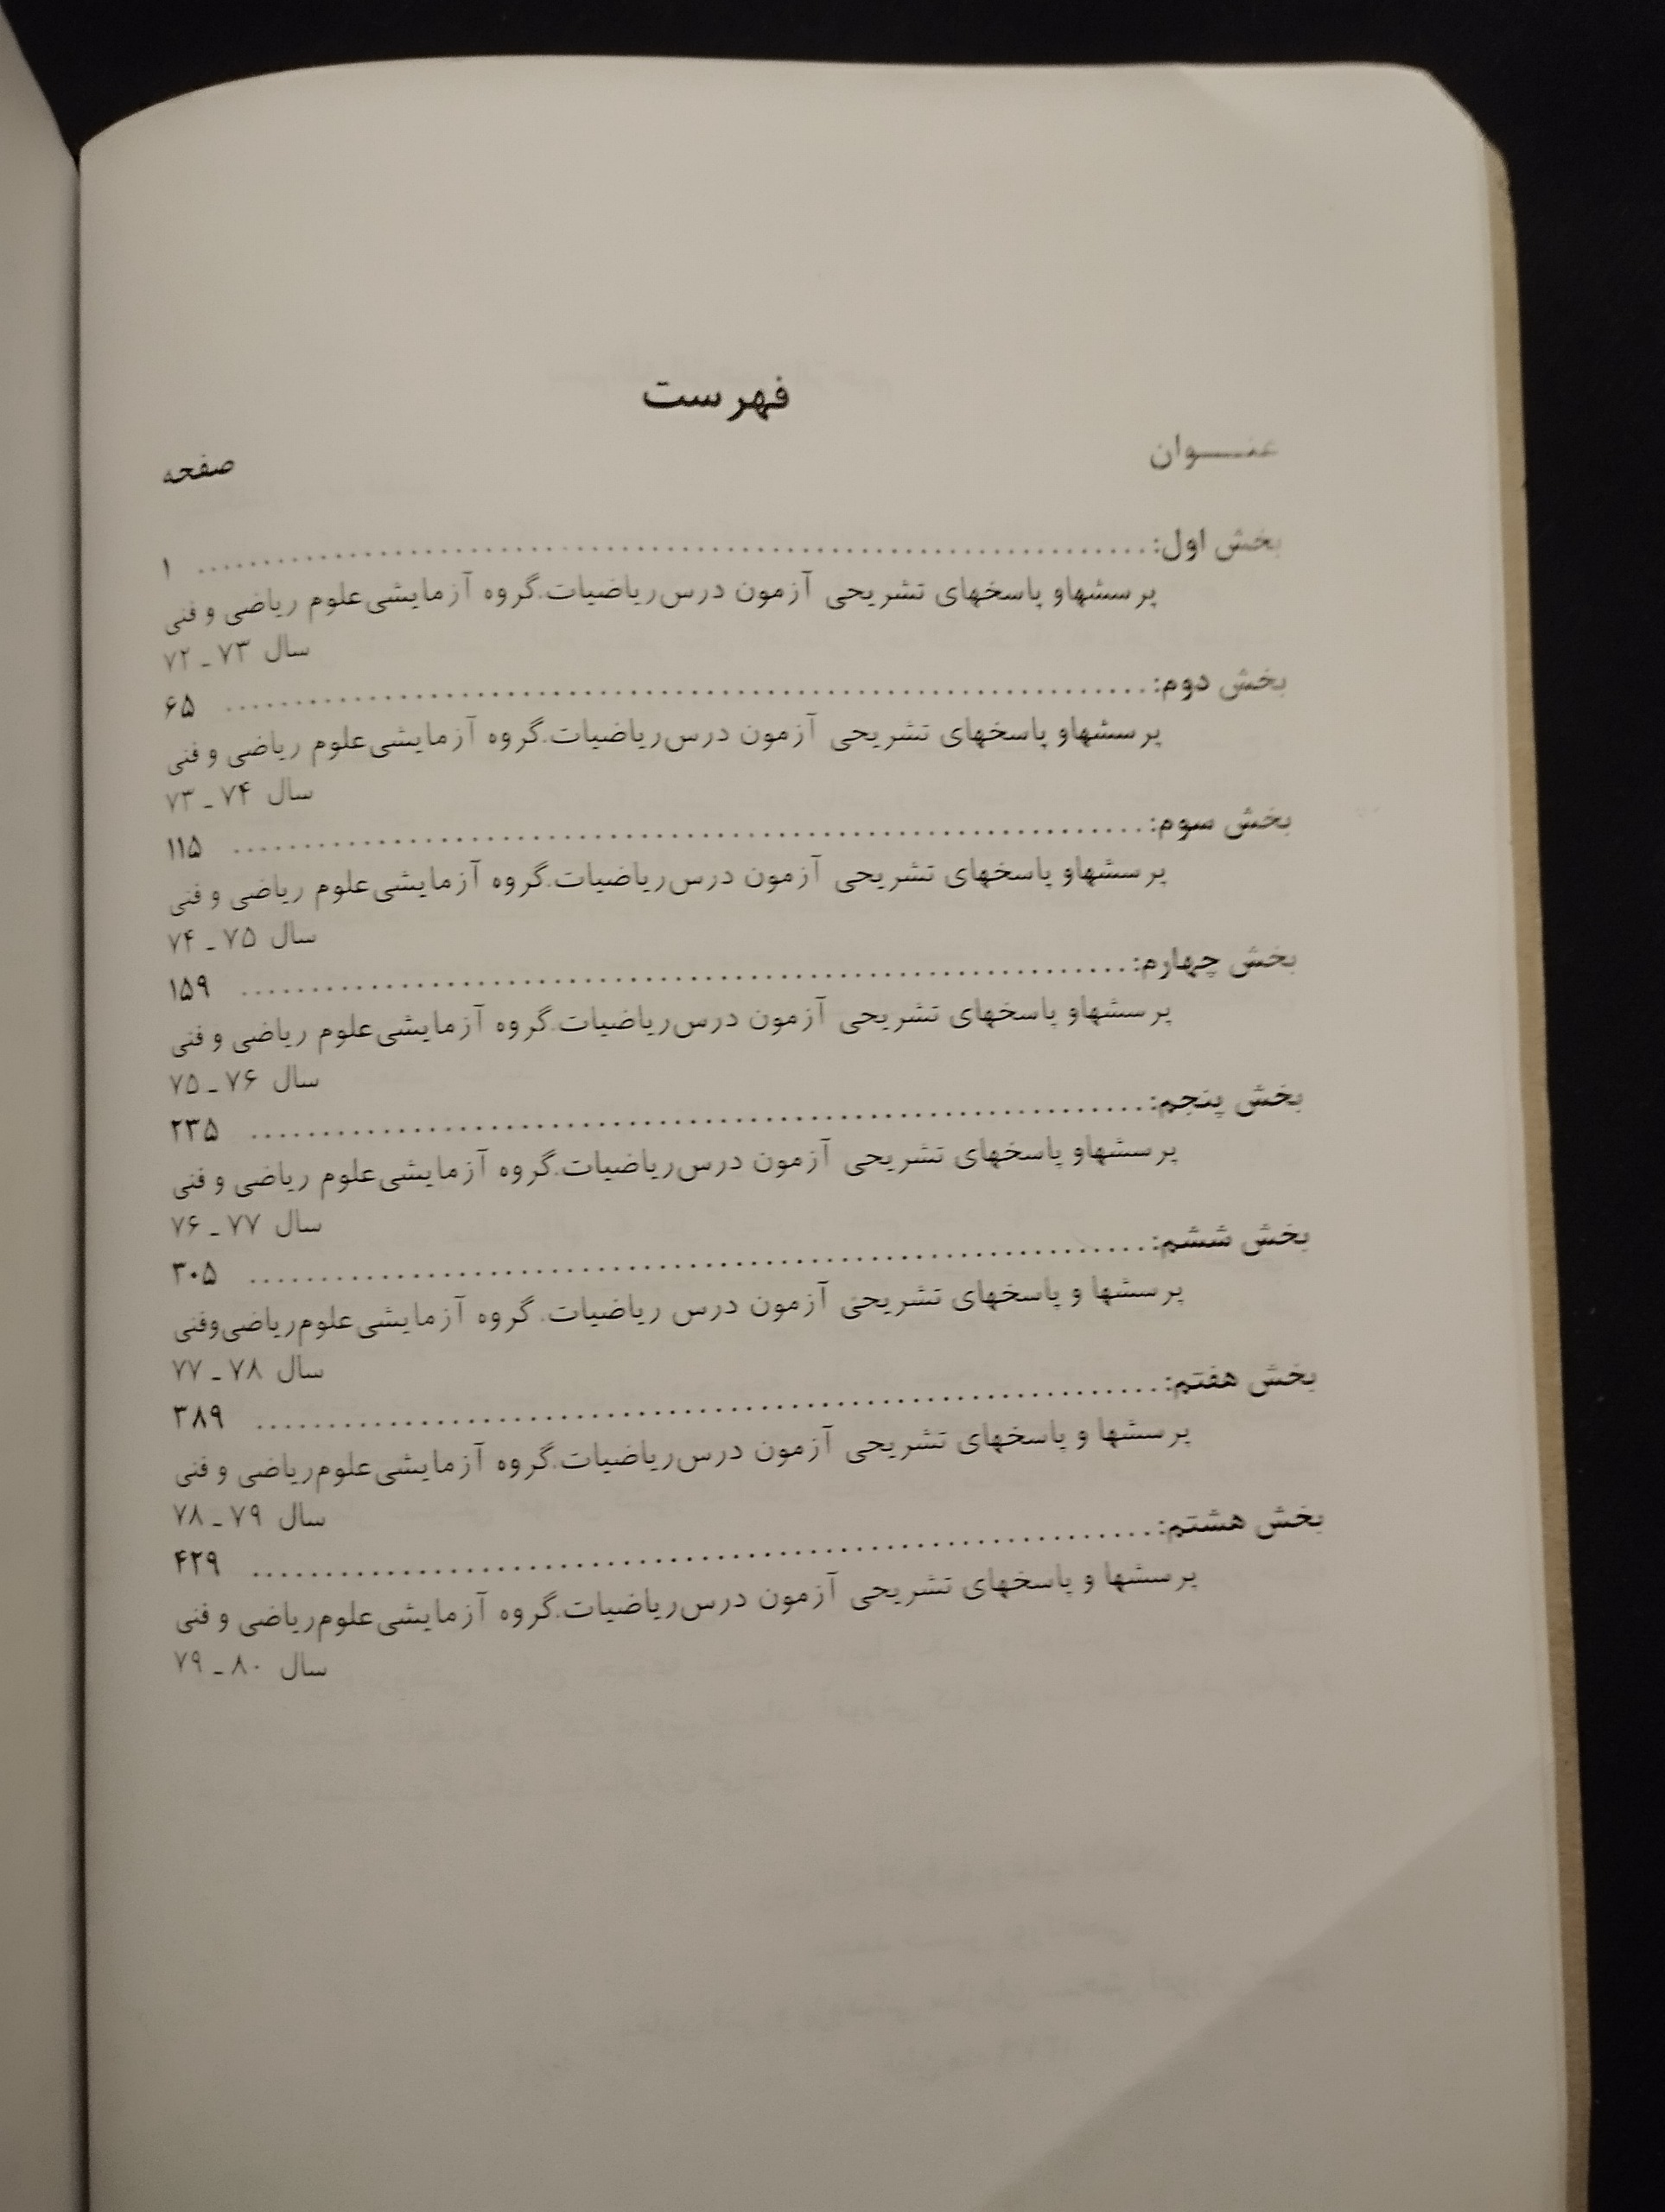 فهرست
عنـــوان صفحه
بخش اول: ........................................ ۱
پرسشهاو پاسخهای تشریحی آزمون درس‌ریاضیات.گروه آزمایشی‌علوم ریاضی و فنی
سال ۷۳ ـ ۷۲
بخش دوم: ........................................ ۶۵
پرسشهاو پاسخهای تشریحی آزمون درس‌ریاضیات.گروه آزمایشی‌علوم ریاضی و فنی
سال ۷۴ ـ ۷۳
بخش سوم: ........................................ ۱۱۵
پرسشهاو پاسخهای تشریحی آزمون درس‌ریاضیات.گروه آزمایشی‌علوم ریاضی و فنی
سال ۷۵ ـ ۷۴
بخش چهارم: ........................................ ۱۵۹
پرسشهاو پاسخهای تشریحی آزمون درس‌ریاضیات.گروه آزمایشی‌علوم ریاضی و فنی
سال ۷۶ ـ ۷۵
بخش پنجم: ........................................ ۲۳۵
پرسشهاو پاسخهای تشریحی آزمون درس‌ریاضیات.گروه آزمایشی‌علوم ریاضی و فنی
سال ۷۷ ـ ۷۶
بخش ششم: ........................................ ۳۰۵
پرسشها و پاسخهای تشریحی آزمون درس ریاضیات. گروه آزمایشی‌علوم‌ریاضی‌وفنی
سال ۷۸ ـ ۷۷
بخش هفتم: ........................................ ۳۸۹
پرسشها و پاسخهای تشریحی آزمون درس‌ریاضیات.گروه آزمایشی‌علوم‌ریاضی و فنی
سال ۷۹ ـ ۷۸
بخش هشتم: ........................................ ۴۲۹
پرسشها و پاسخهای تشریحی آزمون درس‌ریاضیات.گروه آزمایشی‌علوم‌ریاضی و فنی
سال ۸۰ ـ ۷۹